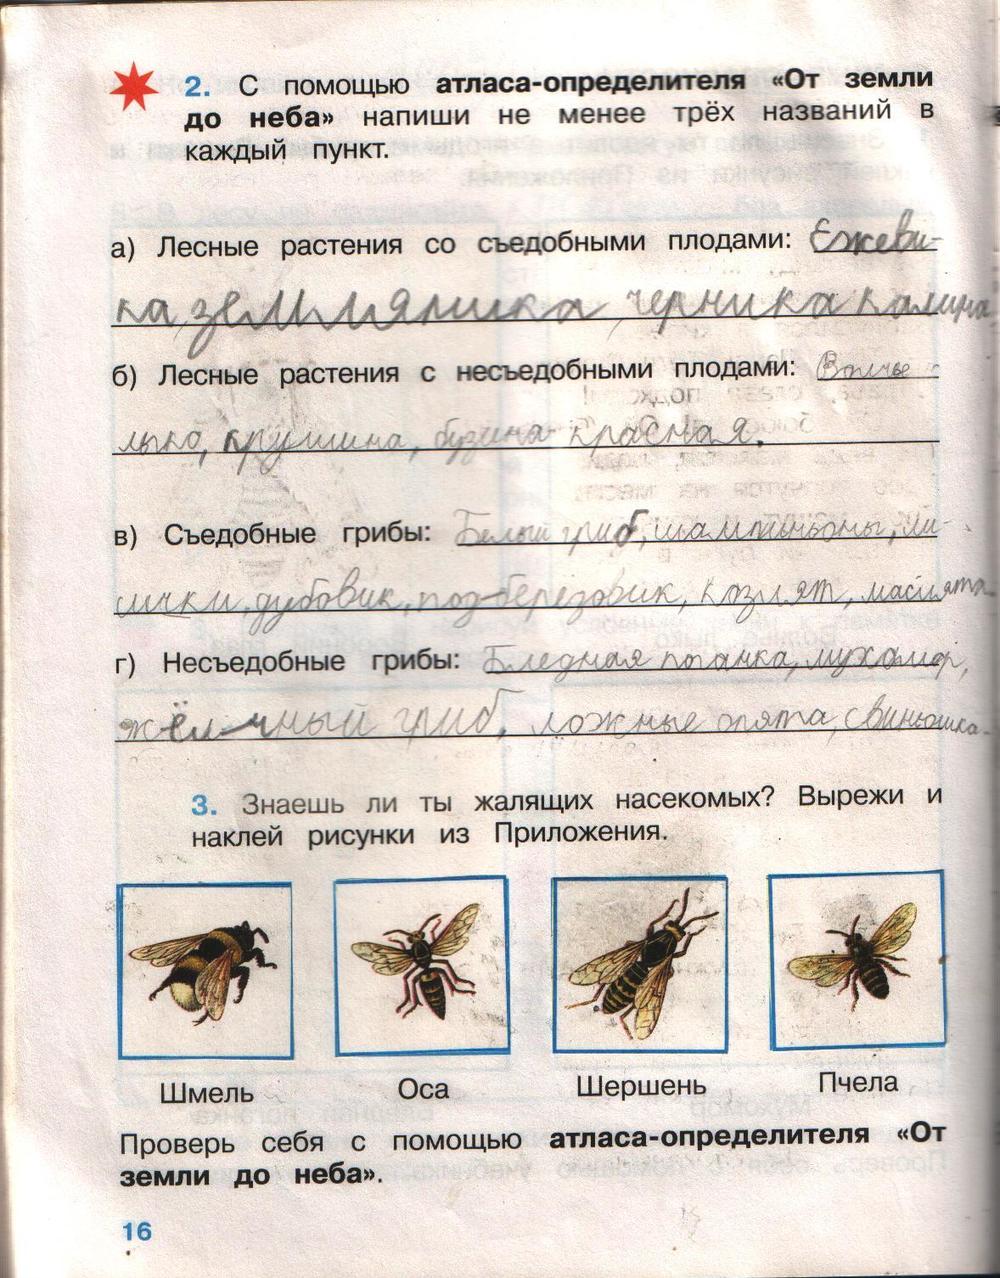 2. С помощью атласа-определителя «От земли
до неба» напиши не менее трёх названий в
каждый пункт.
а) Лесные растения со съедобными плодами: Ежеви-
ка земмляника черника калина
б) Лесные растения с несъедобными плодами: Волчье
лыко, крушина, бузина красная.
в) Съедобные грибы: Белый гриб, шампиньоны, ли-
сички, дубовик, подберёзовик, козляк, маслята
г) Несъедобные грибы: Бледная поганка, мухомор,
жёлчный гриб, ложные опята, свинушка.
3. Знаешь ли ты жалящих насекомых? Вырежи и
наклей рисунки из Приложения.
Шмель Оса Шершень Пчела
Проверь себя с помощью атласа-определителя «От
земли до неба».
16